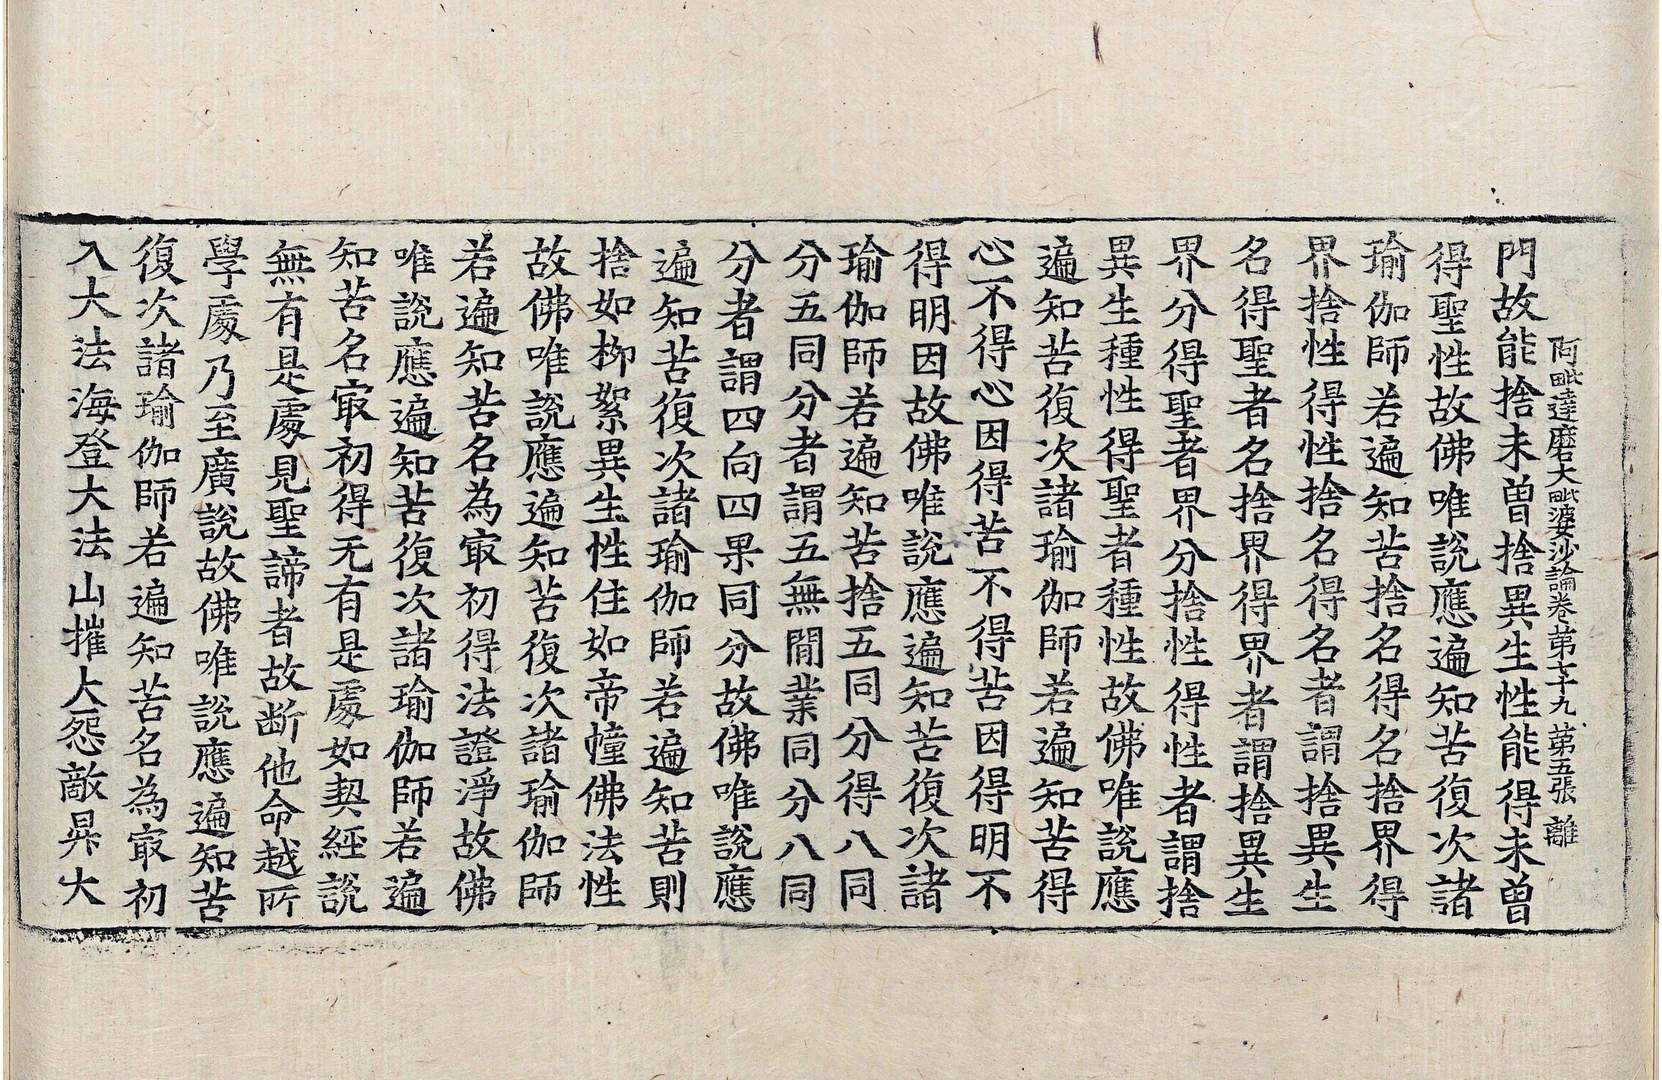 阿毗達磨大毗婆沙論卷第七十九 第五張 離
門故能捨未曾捨異生性能得未曾
得聖性故佛唯說應遍知苦復次諸
瑜伽師若遍知苦捨名得名捨界得
界捨性得性捨名得名者謂捨異生
名得聖者名捨界得界者謂捨異生
界分得聖者界分捨性得性者謂捨
異生種性得聖者種性故佛唯說應
遍知苦復次諸瑜伽師若遍知苦得
心不得心因得苦不得苦因得明不
得明因故佛唯說應遍知苦復次諸
瑜伽師若遍知苦捨五同分得八同
分五同分者謂五無間業同分八同
分者謂四向四果同分故佛唯說應
遍知苦復次諸瑜伽師若遍知苦則
捨如柳絮異生性住如帝幢佛法性
故佛唯說應遍知苦復次諸瑜伽師
若遍知苦名為㝡初得法證淨故佛
唯說應遍知苦復次諸瑜伽師若遍
知苦名㝡初得无有是處如契經說
無有是處見聖諦者故斷他命越所
學處乃至廣說故佛唯說應遍知苦
復次諸瑜伽師若遍知苦名為㝡初
入大法海登大法山摧大怨敵昇大